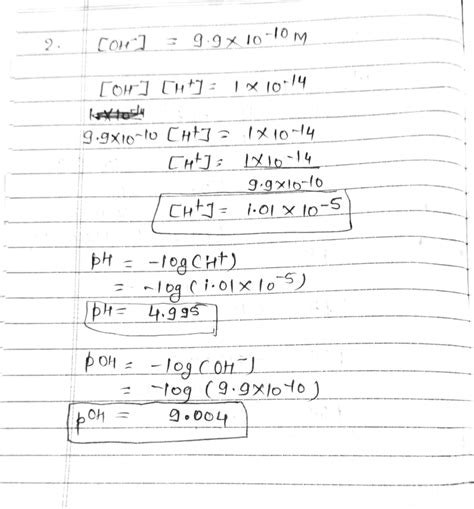 2. [OH-] = 9.9×10-10 M
[OH-] [H+] = 1×10-14
9.9×10-10 [H+] = 1×10-14
[H+] = 1×10-14
9.9×10-10
[H+] = 1.01×10-5
pH = -log(H+)
= -log(1.01×10-5)
pH = 4.995
pOH = -log(OH-)
= -log (9.9×10-10)
pOH = 9.004